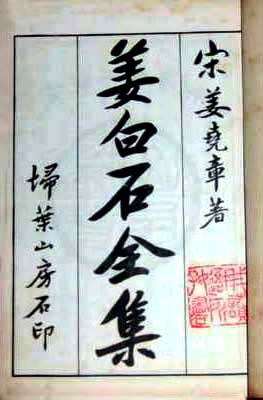 宋姜堯章著
姜白石全集
埽葉山房石印